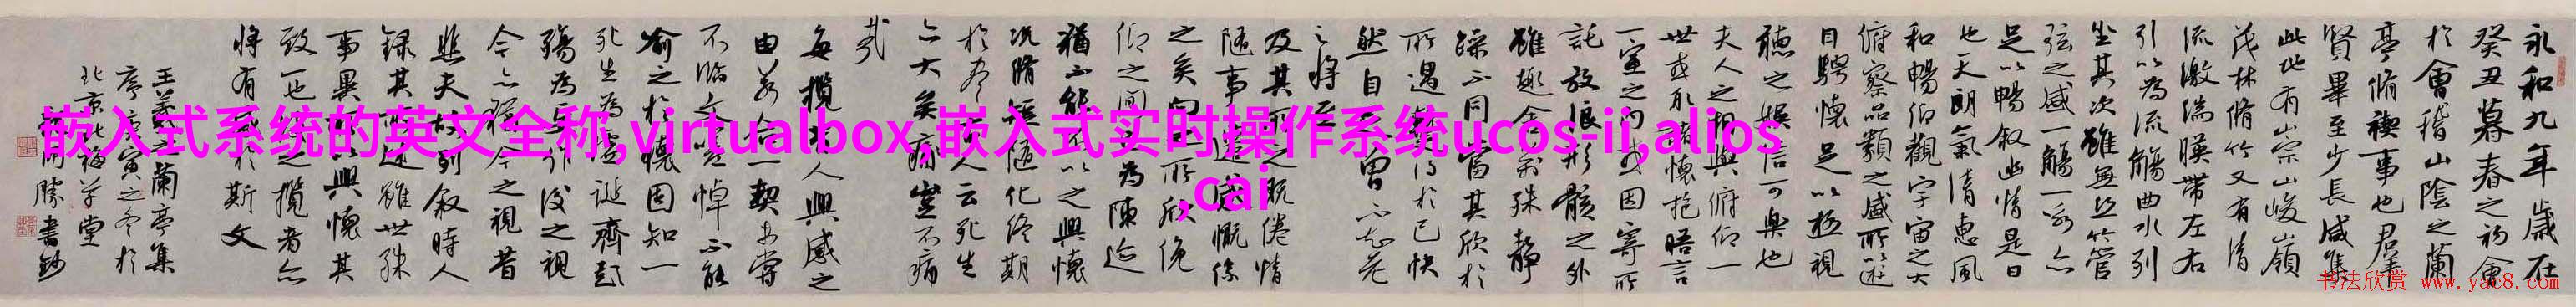 永和九年歲在
癸丑暮春之初會
於會稽山陰之蘭
亭脩禊事也群
賢畢至少長咸集
此地有崇山峻嶺
茂林脩竹又有清
流激湍暎帶左右
引以為流觴曲水列
坐其次雖無丝竹管
弦之盛一觴一詠亦
足以暢敘幽情是日
也天朗氣清惠風
和暢仰觀宇宙之大
俯察品類之盛所以遊
目騁懷足以極視
聽之娛信可樂也
夫人之相與俯仰一
世或取諸懷抱晤言
一室之內或因寄所
託放浪形骸之外
雖趣舍萬殊靜
躁不同當其欣於
所遇暫得於己快
然自足曾不知老
之將至
及其所之既倦情
隨事遷感慨係
之矣向之所欣俛
仰之間以為陳迹
猶不能不以之興懷
況脩短隨化終期
於盡古人云死生
亦大矣豈不痛
哉
每攬昔人興感之
由若合一契未嘗
不臨文嗟悼不能
喻之於懷固知一
死生為虛誕齊彭
殤為妄作後之視
今亦猶今之視昔
悲夫故列敘時人
錄其所述雖世殊
事異所以興懷其
致一也後之攬者亦
將有感於斯文
王羲之蘭亭集
序庚寅之冬於
北京北海草堂
勝書鈔
嵌入式系统的英文全称,virtualbox,嵌入式实时操作系统ucos-ii,alios
,cai
书法欣赏 www.yac8.com